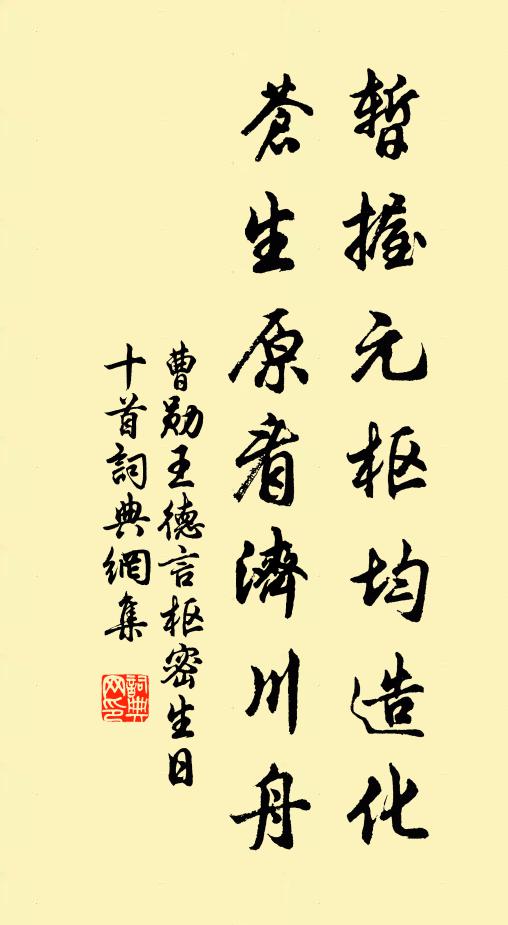 暂握元枢均造化
苍生原看济川舟
曹勋王德言枢密生日
十首詞典網集
詞典网印